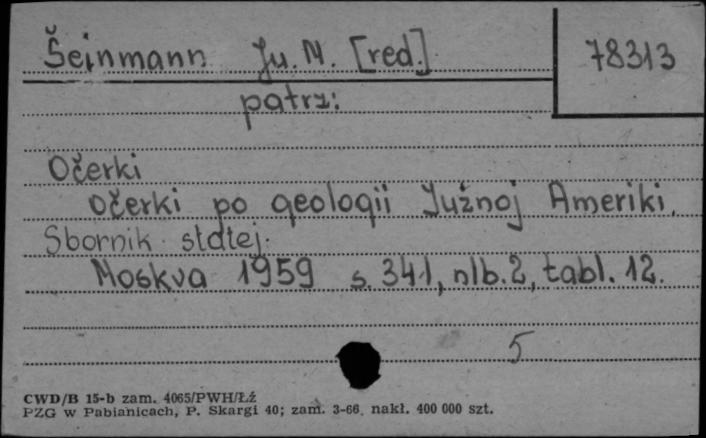 Šeinmann Ju. M. [red.]
78313
patrz:
Očerki
Očerki po geologii Južnoj Ameriki.
Sbornik statej.
Moskva 1959 s. 341, nlb. 2, tabl. 12.
5
CWD/B 15-b zam. 4065/PWH/Łź
PZG w Pabianicach, P. Skargi 40; zam. 3-66. nakł. 400 000 szt.